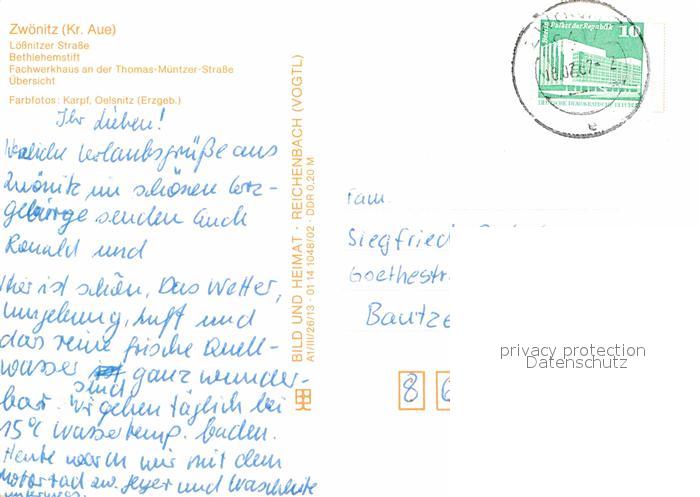 Zwönitz (Kr. Aue)
Lößnitzer Straße
Bethlehemstift
Fachwerkhaus an der Thomas-Müntzer-Straße
Übersicht
Farbfotos: Karpf, Oelsnitz (Erzgeb.)
Ihr Lieben!
Herzliche Urlaubsgrüße aus
Zwönitz im schönen Erz-
gebirge senden Euch
Ronald und
Hier ist schön. Das Wetter,
Umgebung, Luft und
das reine frische Quell-
wasser sind ganz wunder-
bar. Wir gehen täglich bei
15°C Wassertemp. baden.
Heute waren wir mit dem
Motorrad zw. Geyer und Waschleite
unterwegs.
BILD UND HEIMAT · REICHENBACH (VOGTL)
A1/III/26/13 · 01 14 1048/02 · DDR 0,20 M
Palast der Republik 10
DEUTSCHE DEMOKRATISCHE REPUBLIK
Fam.
Siegfried
Goethestr.
Bautze
8 6
privacy protection
Datenschutz